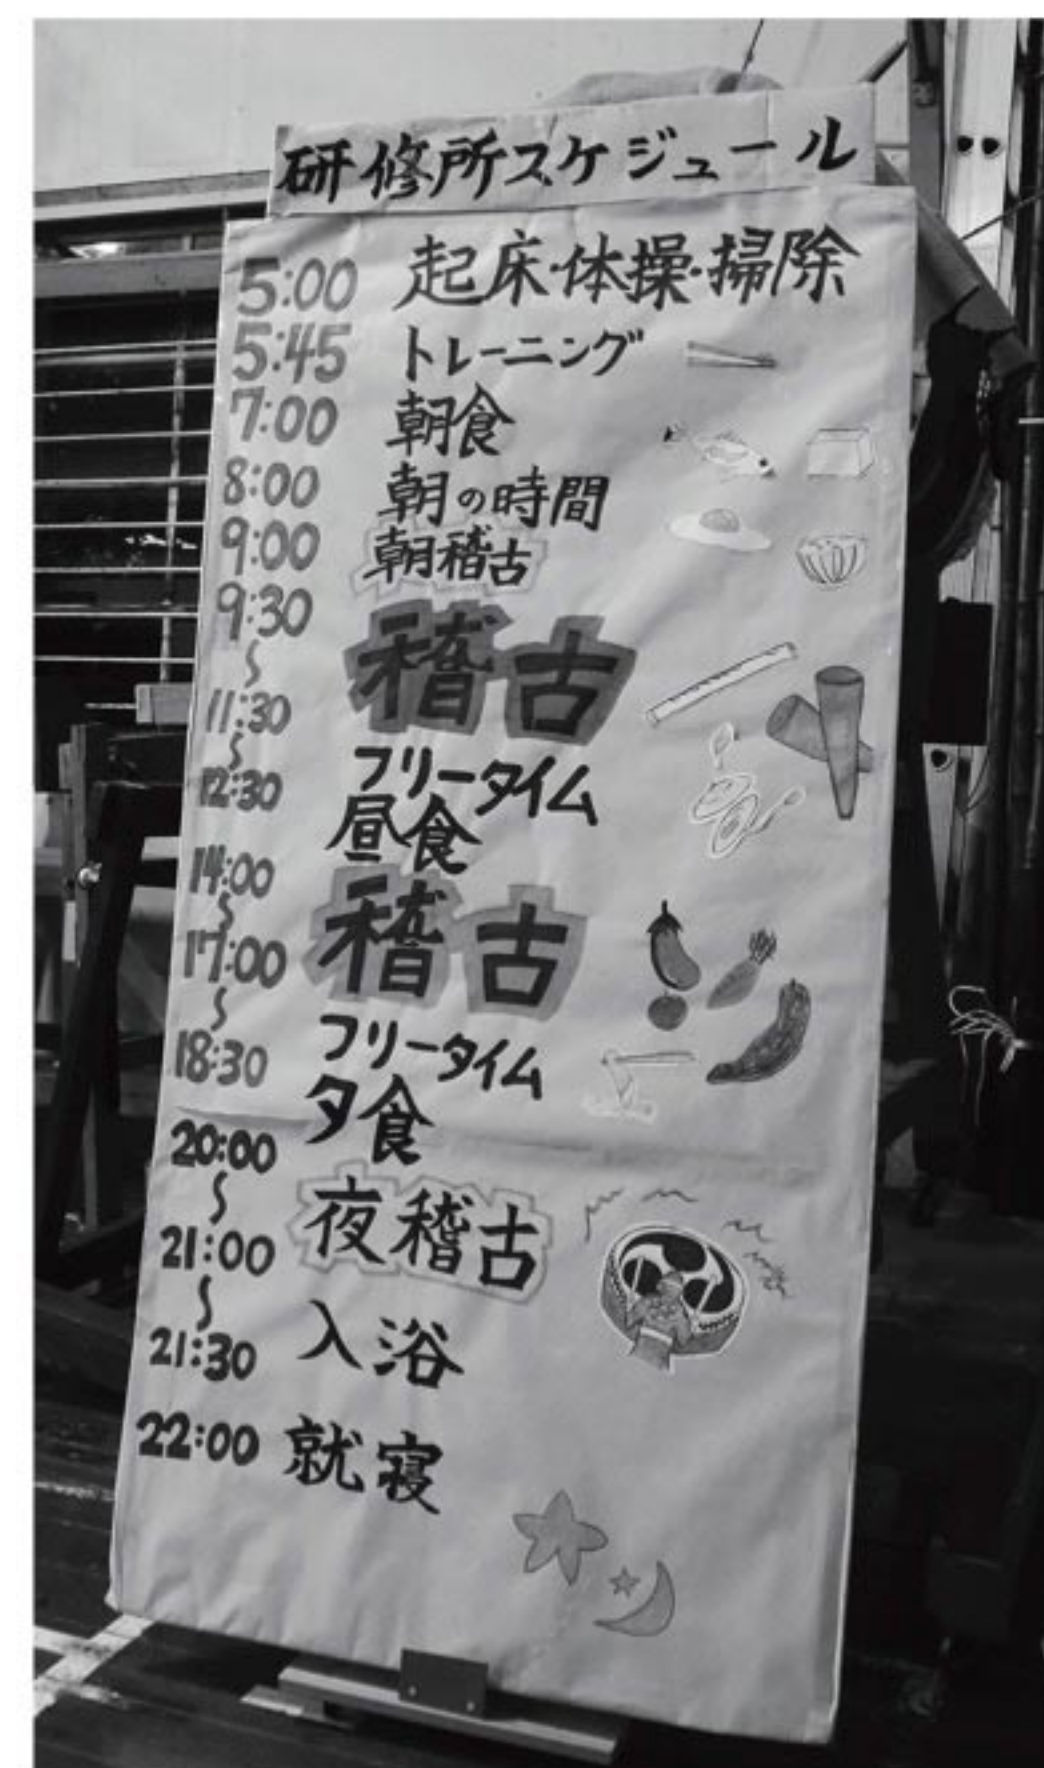 研修所スケジュール
5:00 起床・体操・掃除
5:45 トレーニング
7:00 朝食
8:00 朝の時間
9:00 朝稽古
9:30
〜 稽古
11:30
〜 フリータイム
12:30 昼食
14:00
〜 稽古
17:00
〜 フリータイム
18:30 夕食
20:00
〜 夜稽古
21:00
〜 入浴
21:30
22:00 就寝